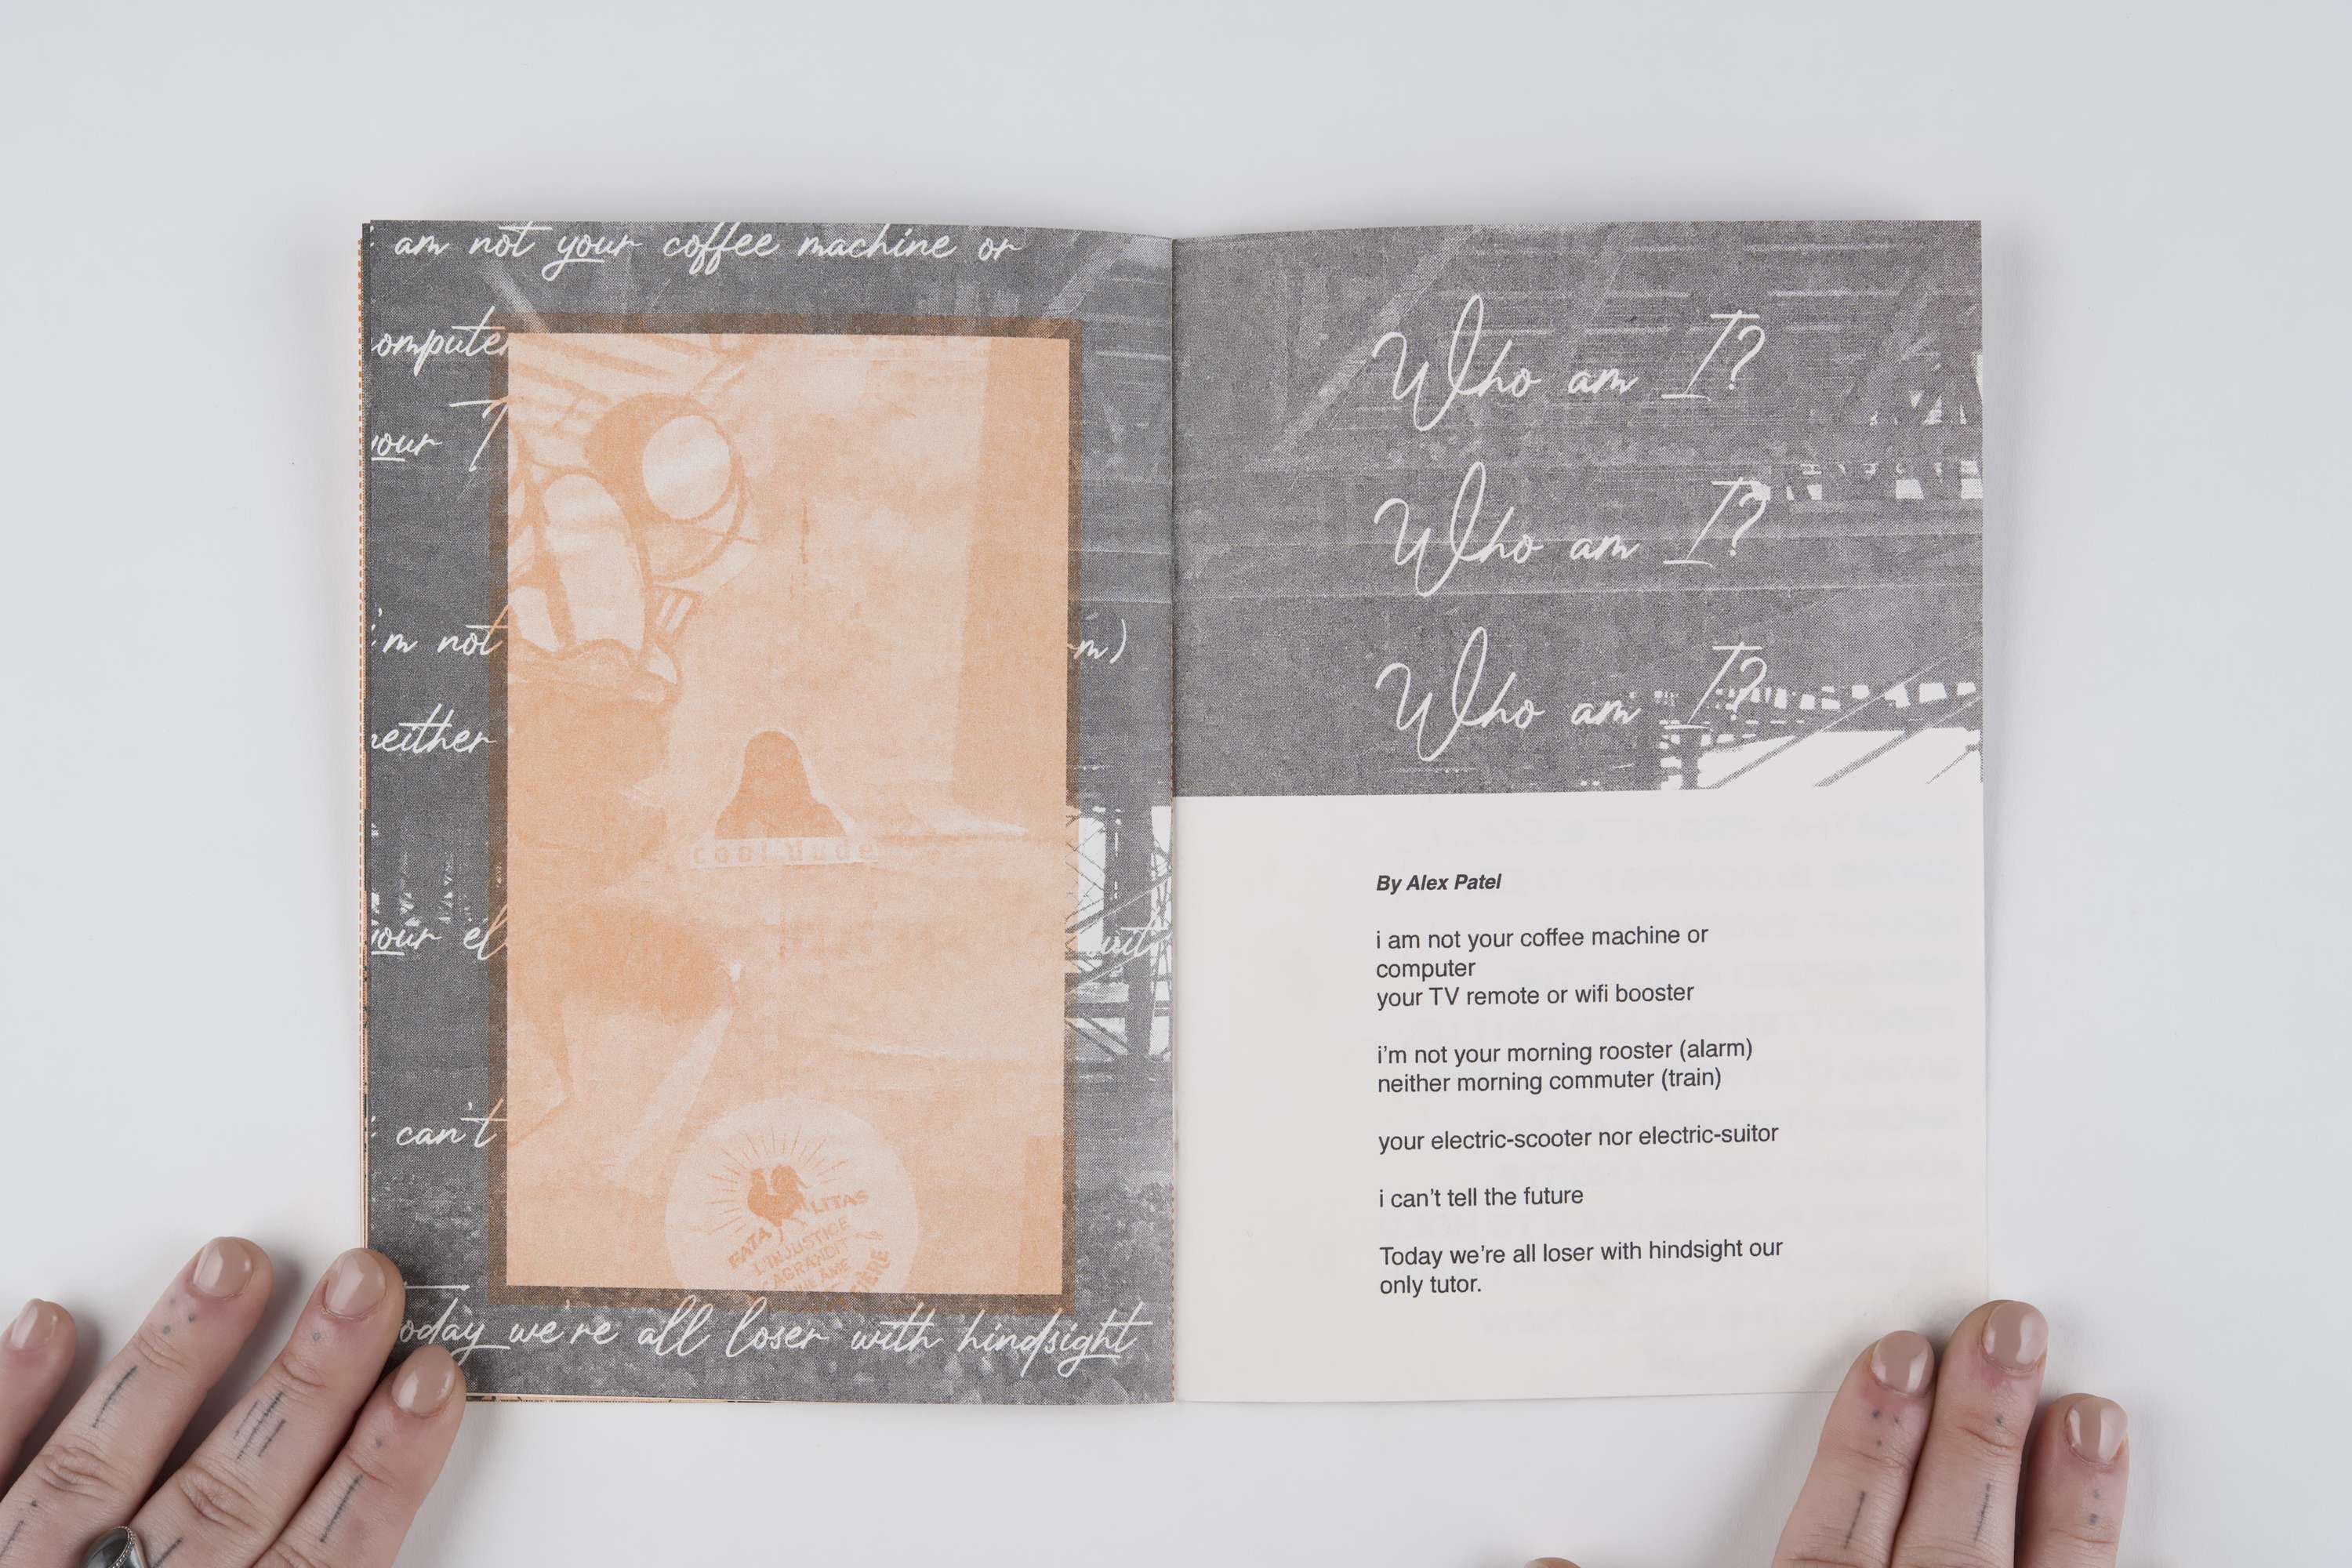 am not your coffee machine or
omputer
your T
'm not m)
neither
your el uit
can't
oday we're all loser with hindsight
cool dude
FATALITAS
L'INJUSTICE
AGRANDIT
UNE ÂME
Who am I?
Who am I?
Who am I?
By Alex Patel
i am not your coffee machine or
computer
your TV remote or wifi booster
i'm not your morning rooster (alarm)
neither morning commuter (train)
your electric-scooter nor electric-suitor
i can't tell the future
Today we're all loser with hindsight our
only tutor.